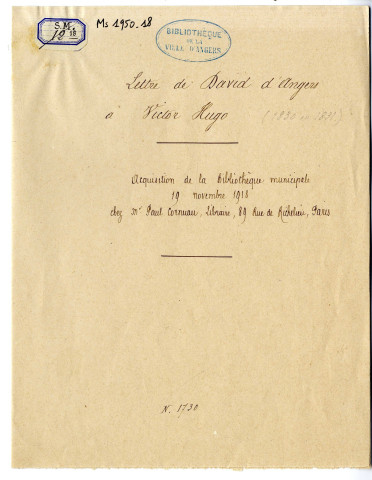 S.M.
Ms 1950.18
BIBLIOTHÈQUE
DE LA
VILLE D'ANGERS
Lettre de David d'Angers
à Victor Hugo
Acquisition de la Bibliothèque municipale
19 novembre 1918
chez Mr Paul Cornuau, Libraire, 89 Rue de Richelieu, Paris
N. 1730